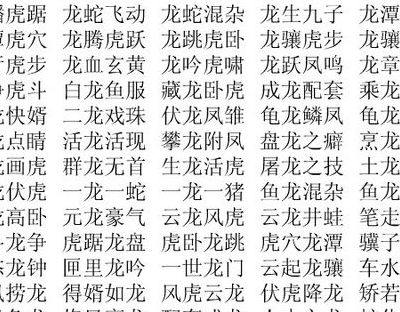 虎踞 龙蛇飞动 龙蛇混杂 龙生九子 龙潭
虎穴 龙腾虎跃 龙跳虎卧 龙骧虎步 龙骧
虎步 龙血玄黄 龙吟虎啸 龙跃凤鸣 龙章
虎斗 白龙鱼服 藏龙卧虎 成龙配套 乘龙
快婿 二龙戏珠 伏龙凤雏 龟龙鳞凤 龟龙
点睛 活龙活现 攀龙附凤 盘龙之癖 烹龙
画虎 群龙无首 生龙活虎 屠龙之技 土龙
伏虎 一龙一蛇 一龙一猪 鱼龙混杂 鱼龙
高卧 元龙豪气 云龙风虎 云龙井蛙 笔走
龙争 虎踞龙盘 虎卧龙跳 虎穴龙潭 骥子
龙钟 匣里龙吟 一世龙门 云起龙骧 车水
捞龙 得婿如龙 风虎云龙 伏虎降龙 矫若